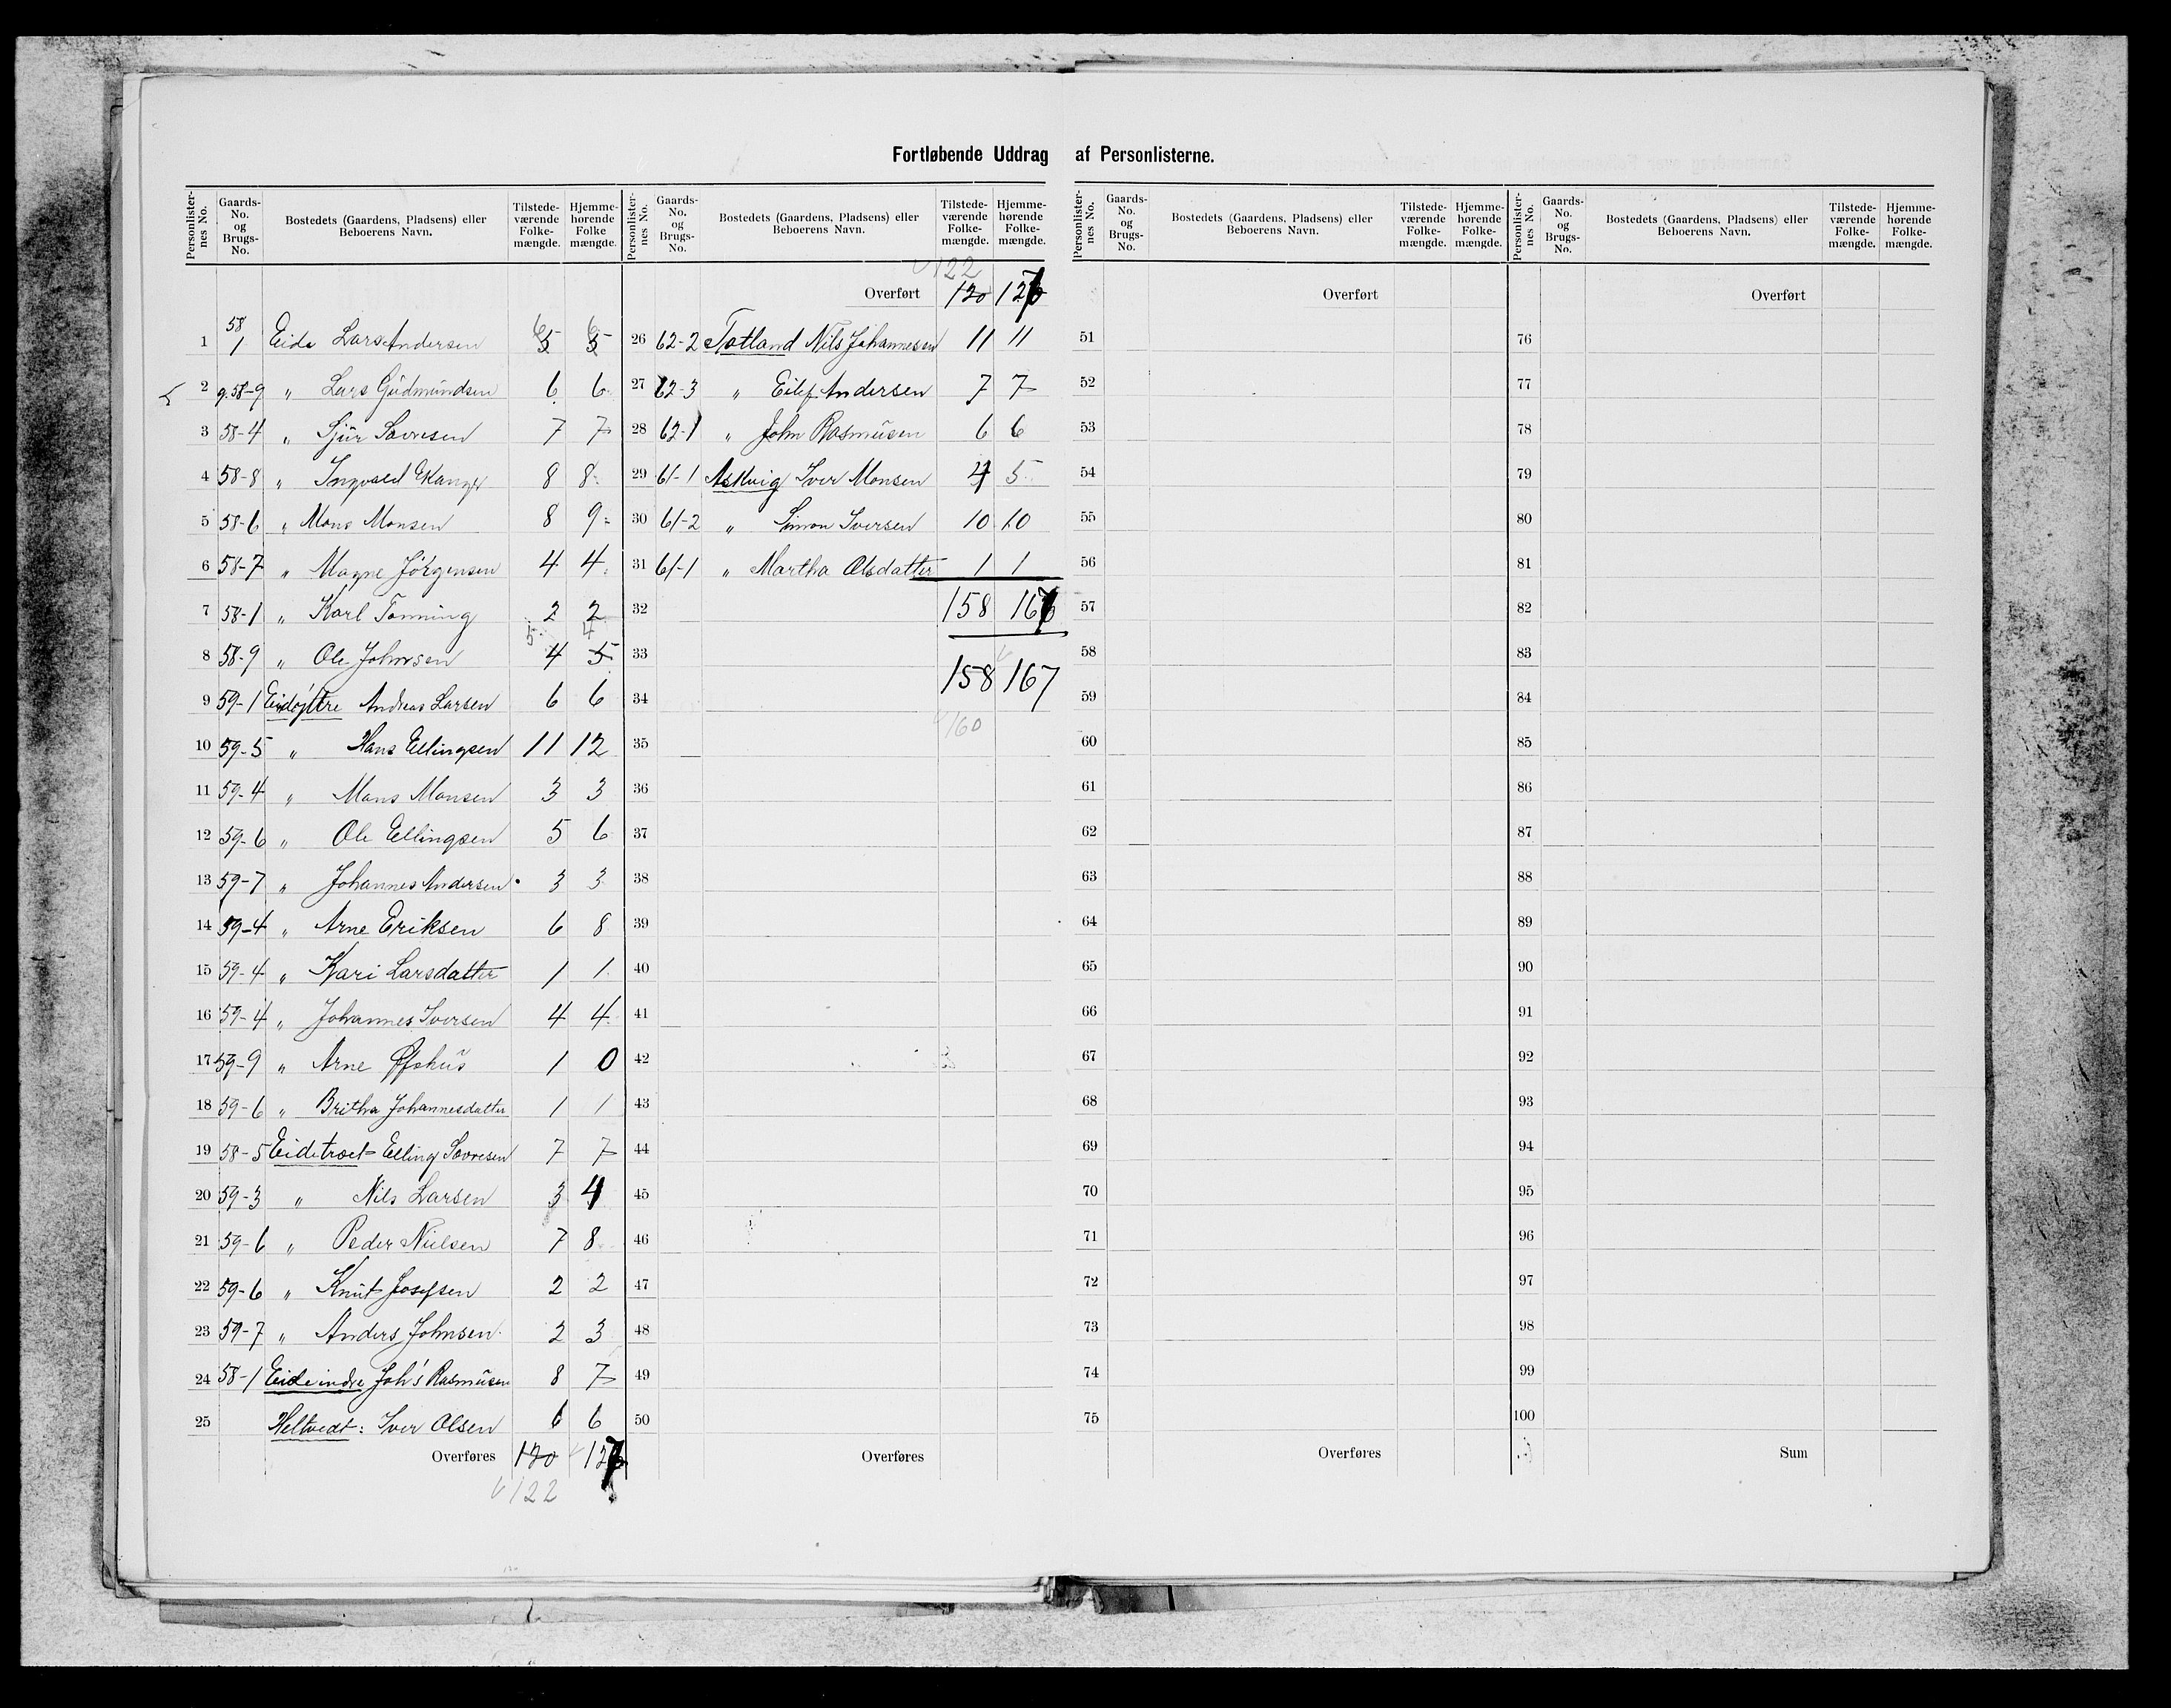 Fortløbende Uddrag af Personlisterne.
Personlister-nes No. Gaards-No. og Brugs-No. Bostedets (Gaardens, Pladsens) eller Beboerens Navn. Tilstede-værende Folke-mængde. Hjemme-hørende Folke mængde.
1 58 1 Eide Lars Andersen
2 g.58-9 " Lars Gudmundsen 6 6
3 58-4 " Sjur Sørresen 7 7
4 58-8 " Ingvald Ekanger 8 8
5 58-6 " Mons Monsen 8 9
6 58-7 " Magne Jörgensen 4 4
7 58-1 " Karl Tonning 2 2
5 4
8 58-9 " Ole Johnsen 4 5
9 59-1 Andreas Larsen 6 6
10 59-5 " Hans Ellingsen 11 12
11 59-4 " Mons Monsen 3 3
12 59-6 " Ole Ellingsen 5 6
13 59-7 " Johannes Andersen 3 3
14 59-4 " Arne Eriksen 6 8
15 59-4 " Kari Larsdatter 1 1
16 59-4 " Johannes Iversen 4 4
17 59-9 " Arne 1 0
18 59-6 " Britha Johannesdatter 1 1
19 58-5 Eidetræet Elling Sørresen 7 7
20 59-3 " Nils Larsen 3 4
21 59-6 " Peder Nielsen 7 8
22 59-6 " Knut Josefsen 2 2
23 59-7 " Anders Johnsen 2 3
24 58-1 Eide indre Joh's Rasmusen 8 7
25 Heltvedt: Iver Olsen 6 6
Overføres 120 127
122
Personlister-nes No. Gaards-No. og Brugs-No. Bostedets (Gaardens, Pladsens) eller Beboerens Navn. Tilstede-værende Folke-mængde. Hjemme-hørende Folke-mængde.
122
Overført 120 127
26 62-2 Totland Nils Johannesen 11 11
27 62-3 " Eilef Andersen 7 7
28 62-1 " John Rasmusen 6 6
29 61-1 Askvig Iver Monsen 4 5
30 61-2 " Simon Iversen 10 10
31 61-1 " Martha Olsdatter 1 1
32 158 167
33 158 167
34
160
35
36
37
38
39
40
41
42
43
44
45
46
47
48
49
50
Overføres
Personlister-nes No. Gaards-No. og Brugs-No. Bostedets (Gaardens, Pladsens) eller Beboerens Navn. Tilstede-værende Folke-mængde. Hjemme-hørende Folke-mængde.
Overført
51
52
53
54
55
56
57
58
59
60
61
62
63
64
65
66
67
68
69
70
71
72
73
74
75
Overføres
Personlister-nes No. Gaards-No. og Brugs-No. Bostedets (Gaardens, Pladsens) eller Beboerens Navn. Tilstede-værende Folke-mængde. Hjemme-hørende Folke-mængde.
Overført
76
77
78
79
80
81
82
83
84
85
86
87
88
89
90
91
92
93
94
95
96
97
98
99
100
Sum